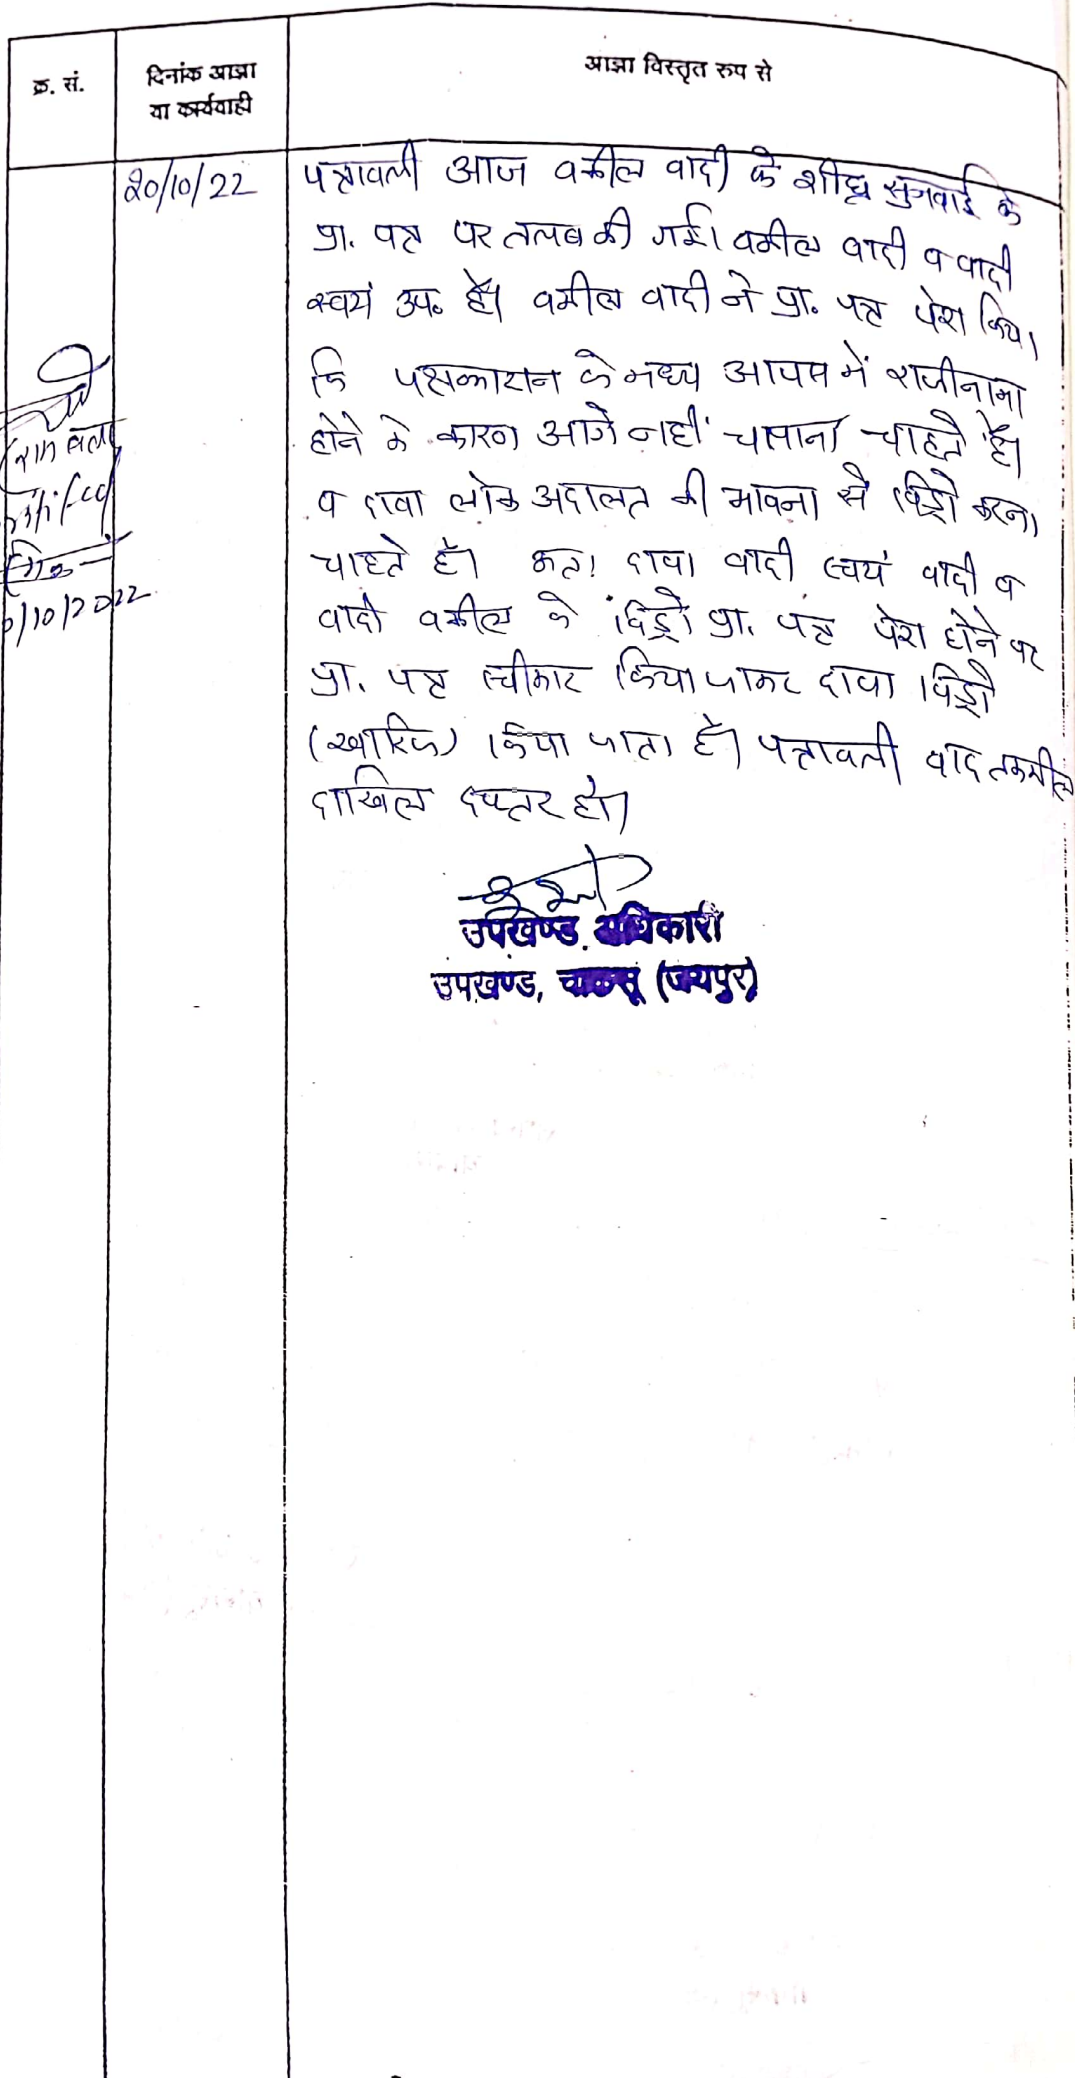 क्र. सं.
दिनांक आज्ञा
या कार्यवाही
आज्ञा विस्तृत रुप से
20/10/22
पत्रावली आज वकील वादी के शीघ्र सुनवाई के
प्रा. पत्र पर तलब की गई। वकील वादी व वादी
स्वयं उप. है। वकील वादी ने प्रा. पत्र पेश किया
कि पक्षकारान के मध्य आपस में राजीनामा
होने के कारण आगे नहीं चलाना चाहते है।
व दावा लोक अदालत की भावना से विड्रो करना
चाहते है। अतः दावा वादी स्वयं वादी व
वादी वकील के विड्रो प्रा. पत्र पेश होने पर
प्रा. पत्र स्वीकार किया जाकर दावा विड्रो
(खारिज) किया जाता है। पत्रावली बाद तकमील
दाखिल दफ्तर हो।
/10/2022
उपखण्ड अधिकारी
उपखण्ड, चाकसू (जयपुर)